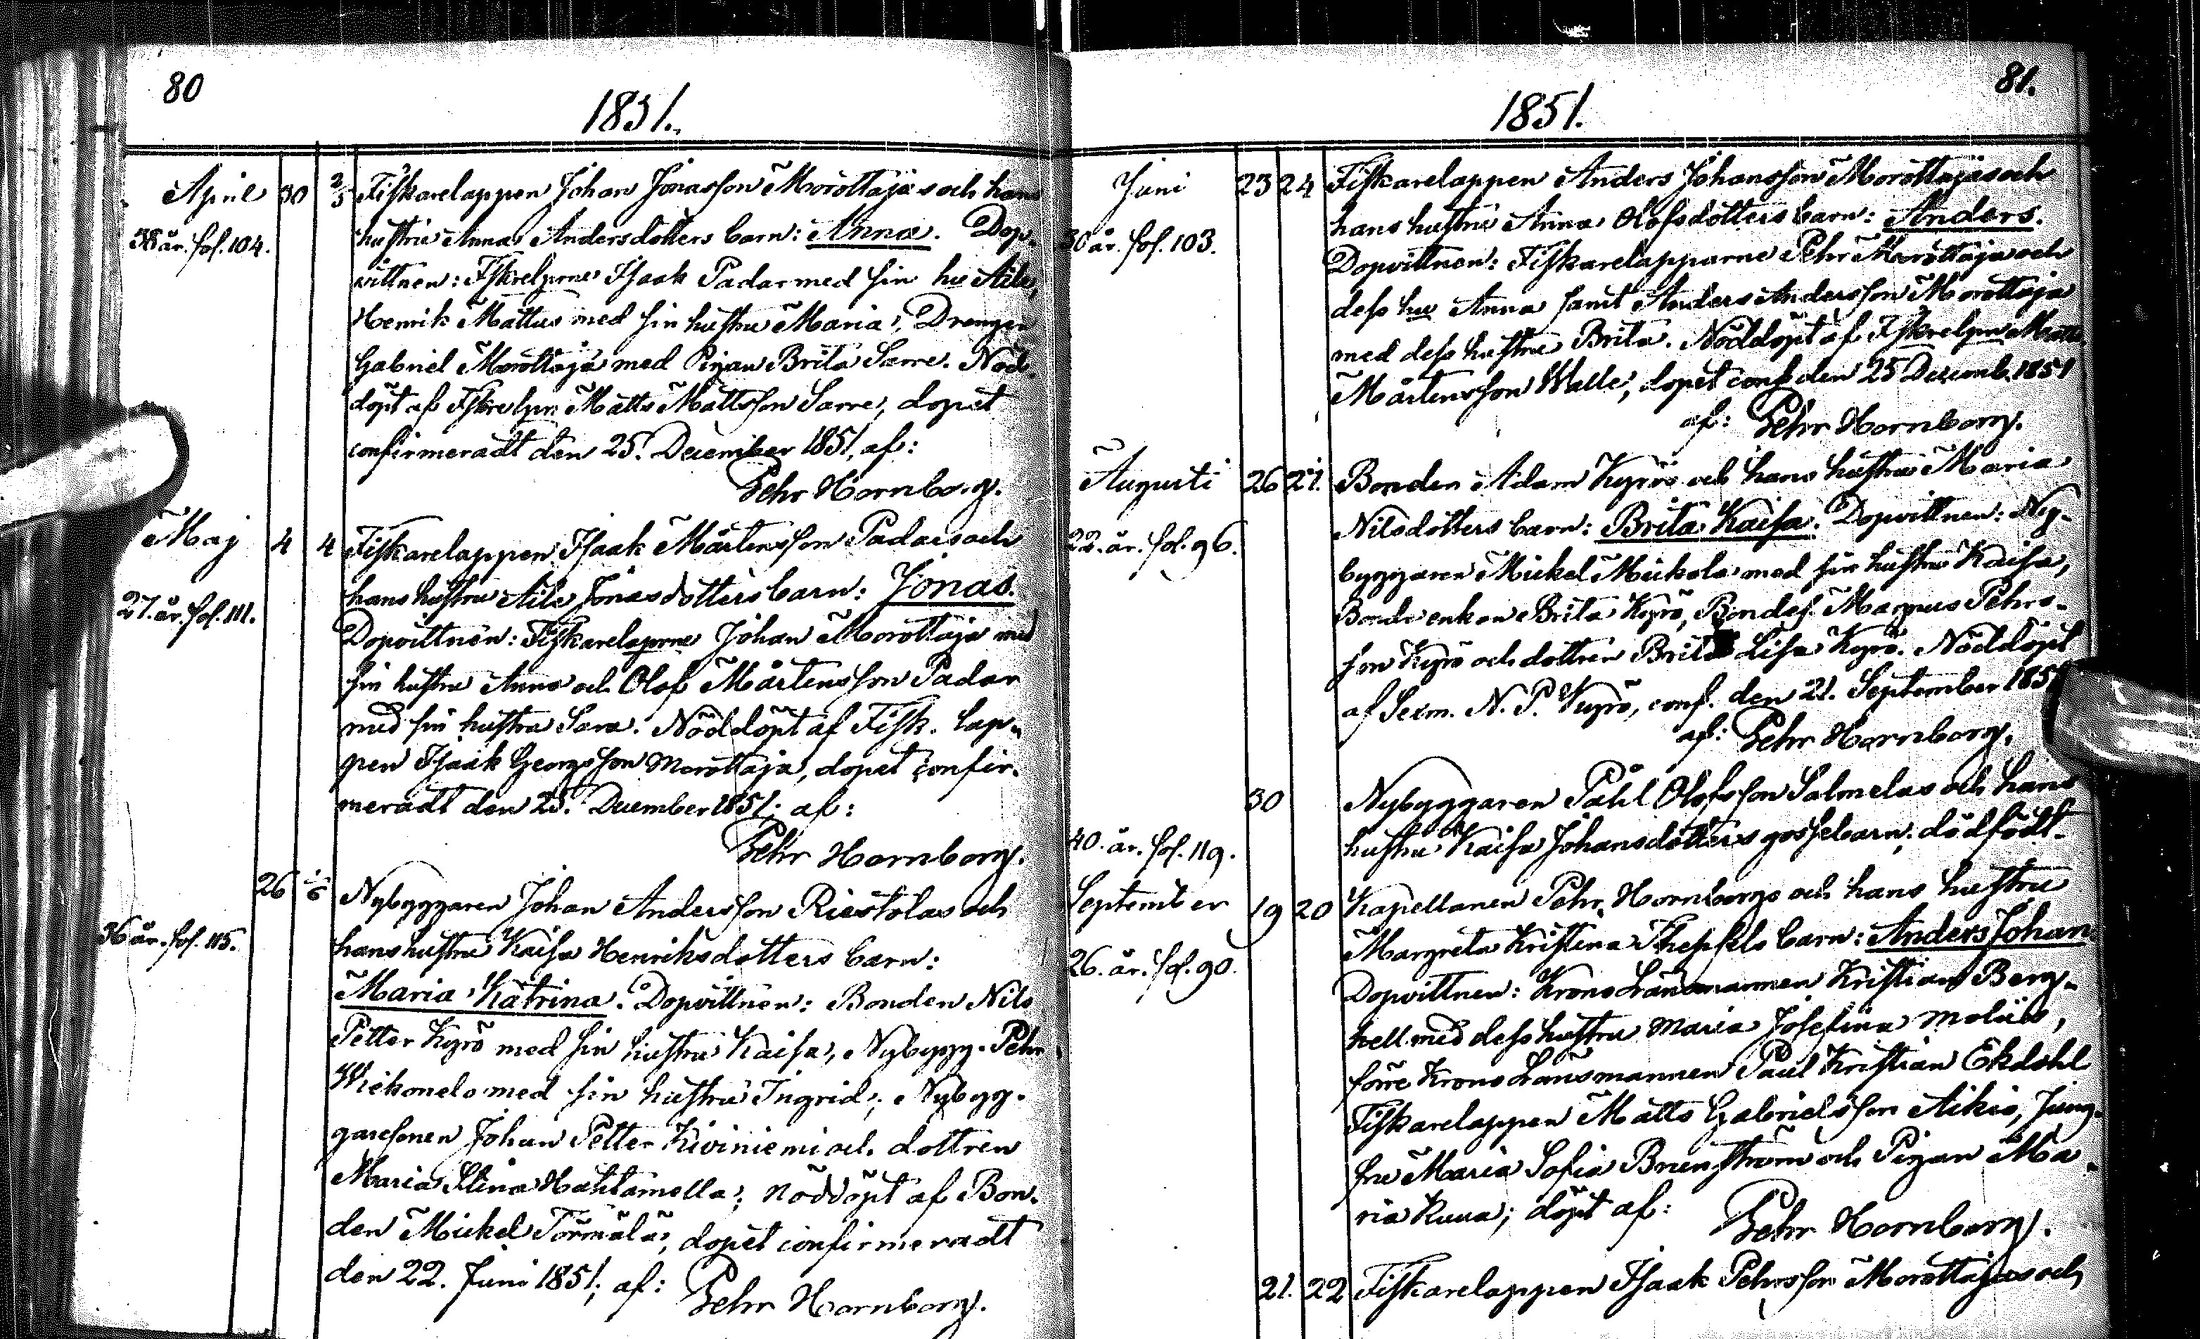 80
1851.
April 30 2/5 Fiskarelappen Johan Jonasson Morottajas och hans
38 år. fol. 104. hustru Annas Andersdotters barn: Anna. Dop-
vittnen: Fskrelprne Isaak Padar med sin hu Aile,
Henrik Mattus med sin hustru Maria, Drengen
Gabriel Morottaja med Pigan Brita Sarre. Nöd-
döpt af Fskrelpn Matts Mattsson Sarre, dopet
confirmeradt den 25. December 1851, af:
Pehr Hornborg.
Maj 4 4 Fiskarelappen Isaak Mårtensson Padars och
hans hustru Aile Jonasdotters barn: Jonas.
27. år. fol. 111.
Dopvittnen: Fiskarelaprne Johan Morottaja med
sin hustru Anna och Olof Mårtensson Padar
med sin hustru Sara. Nöddöpt af Fisk. lap-
pen Isaak Georgsson Morottaja, dopet confir-
meradt den 25. December 1851; af:
Pehr Hornborg.
26 1/6 Nybyggaren Johan Andersson Riestolas och
36 år. fol. 115. hans hustru Kaisa Henriksdotters barn:
Maria Katrina. Dopvittnen: Bonden Nils
Petter Kyrö med sin hustru Kaisa, Nybygg. Pehr
Wiekonelo med sin hustru Ingrid; Nybygg-
garesonen Johan Petter Kiviniemi och dottren
Maria Stina Hahtamella; nöddöpt af Bon-
den Mickel Törmälä, dopet confirmeradt
den 22. Juni 1851; af: Pehr Hornborg.
81.
1851.
Juni 23 24 Fiskarelappen Anders Johansson Morottajas och
hans hustru Anna Olofsdotters barn: Anders.
30 år. fol. 103.
Dopvittnen: Fiskarelapparne Pehr Morottaja och
dess hu Anna samt Anders Andersson Morottaja
med dess hustru Brita. Nöddöpt af Fskrelpn Matts
Mårtensson Walle, dopet conf. den 25 Decemb. 1851
af: Pehr Hornborg.
Augusti 26 27. Bonden Adam Kyrös och hans hustru Maria
22. år. fol. 96. Nilsdotters barn: Brita Kaisa. Dopvittnen: Ny-
byggaren Mickel Mickola med sin hustru Kaisa,
Bonde enkan Brita Kyrö, Bondes. Magnus Pehrs-
son Kyrö och dottren Brita Lisa Kyrö. Nöddöpt
af Sexm. N. P. Kyrö, conf. den 21. September 1851
af: Pehr Hornborg.
30 Nybyggaren Påhl Olofsson Salmelas och hans
40. år. fol. 119. hustru Kaisa Johansdotters gossebarn; dödfödt.
September 19 20 Kapellanen Pehr Hornborgs och hans hustru
26. år. fol. 90. Margreta Kristina barn: Anders Johan
Dopvittnen: Krono Länsmannen Kristian Berg-
hell med dess hustru Maria Josefina
förre Krono Länsmannen Paul Kristian Ekdahl
Fiskarelappen Matts Gabrielsson Aikio, Jung-
fru Maria Sofia Brunström och Pigan Ma-
ria Kuua; döpt af: Pehr Hornborg.
21. 22 Fiskarelappen Isaak Pehrsson Morottajas och